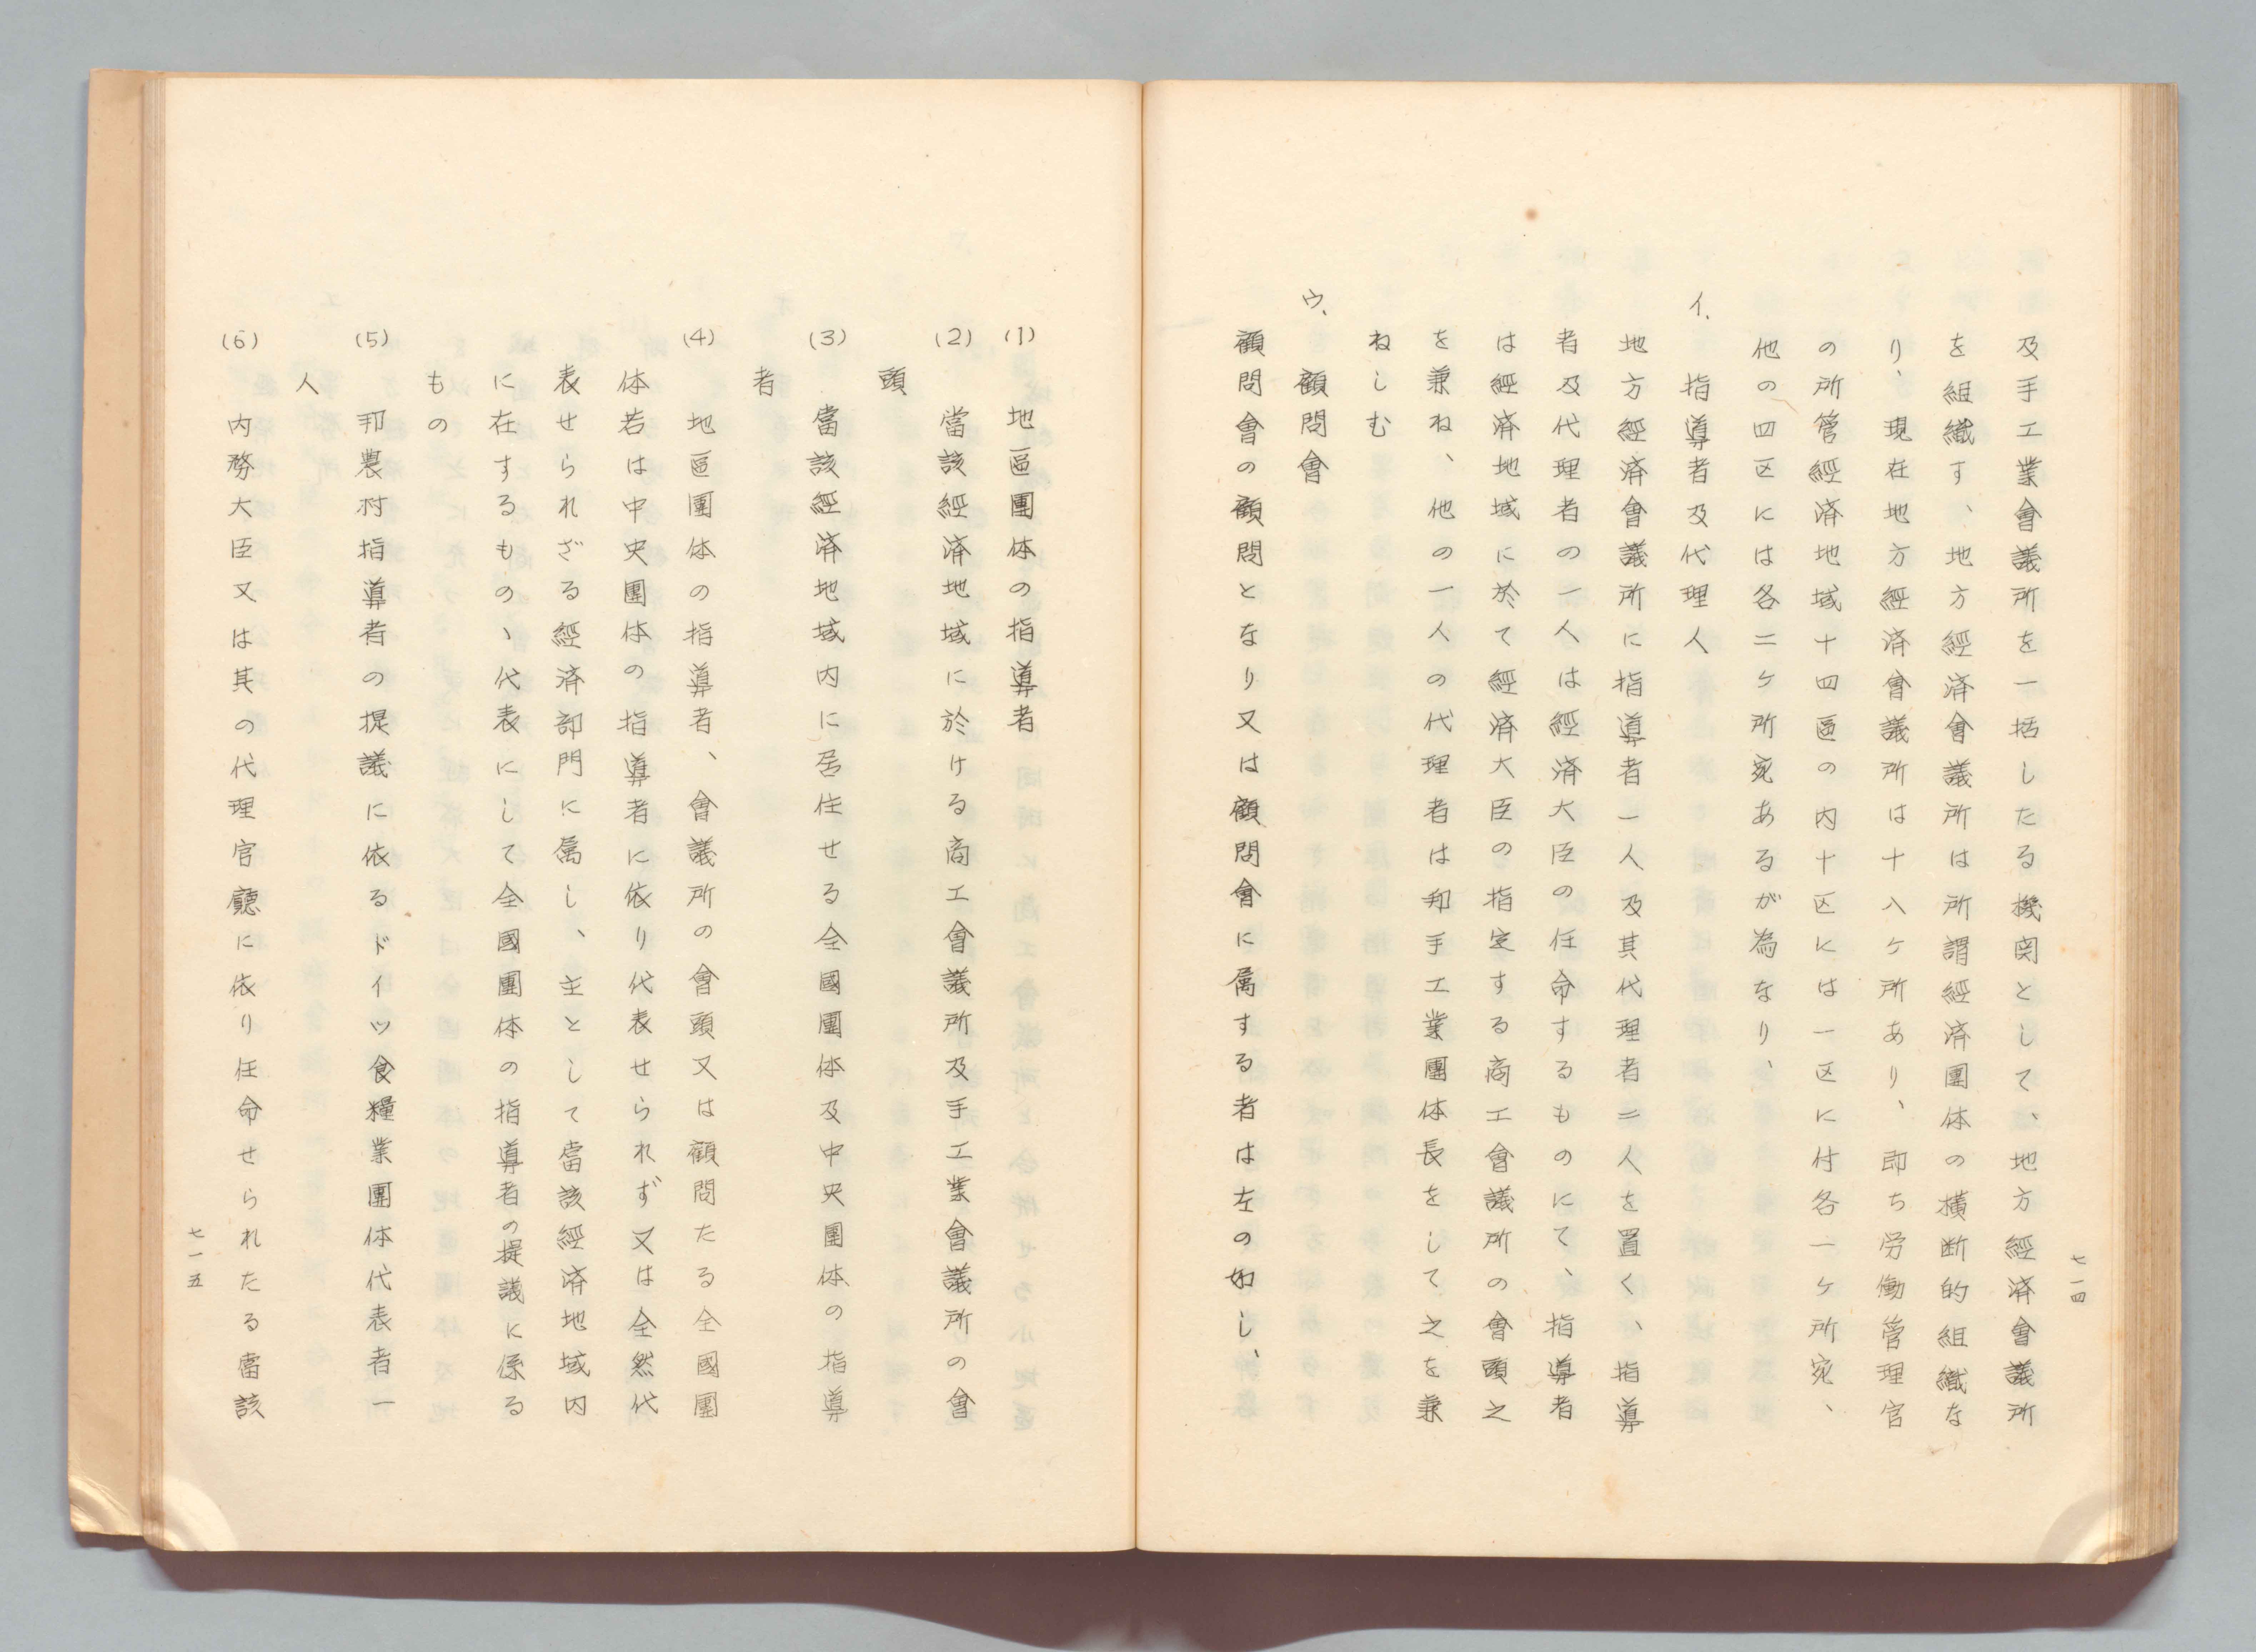 七一四
及手工業會議所を一括したる機関として、地方經済會議所
を組織す、地方經済會議所は所謂經済團体の横断的組織な
り、現在地方經済會議所は十八ケ所あり、即ち労働管理官
の所管經済地域十四區の内十区には一区に付各一ケ所宛、
他の四区には各二ケ所宛あるが為なり、
イ、指導者及代理人
地方經済會議所に指導者一人及其代理者二人を置く、指導
者及代理者の一人は經済大臣の任命するものにて、指導者
は經済地域に於て經済大臣の指定する商工會議所の會頭之
を兼ね、他の一人の代理者は邦手工業團体長をして之を兼
ねしむ
ウ、顧問會
顧問會の顧問となり又は顧問會に属する者は左の如し、
(1)地區團体の指導者
(2)當該經済地域に於ける商工會議所及手工業會議所の會
頭
(3)當該經済地域内に居住せる全國團体及中央團体の指導
者
(4)地區團体の指導者、會議所の會頭又は顧問たる全國團
体若は中央團体の指導者に依り代表せられず又は全然代
表せられざる經済部門に属し、主として當該經済地域内
に在するもの、代表にして全國團体の指導者の提議に係る
もの
(5)邦農村指導者の提議に依るドイツ食糧業團体代表者一
人
(6)内務大臣又は其の代理官廳に依り任命せられたる當該
七一五